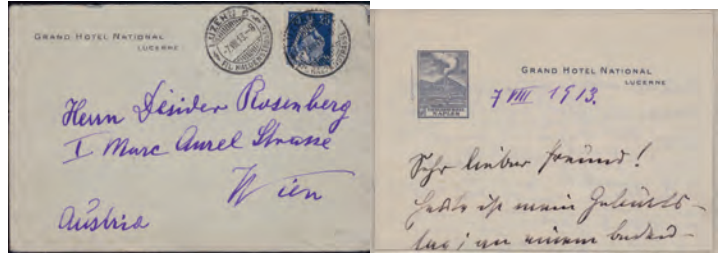 GRAND HOTEL NATIONAL
LUCERNE
LUZERN 6
25
Herrn Desider Rosenberg
I Marc Aurel Strasse
Wien
Austria
GRAND HOTEL NATIONAL
LUCERNE
7 VIII 1913.
Sehr lieber Freund!
Heute ist mein Geburts-
tag; an einem